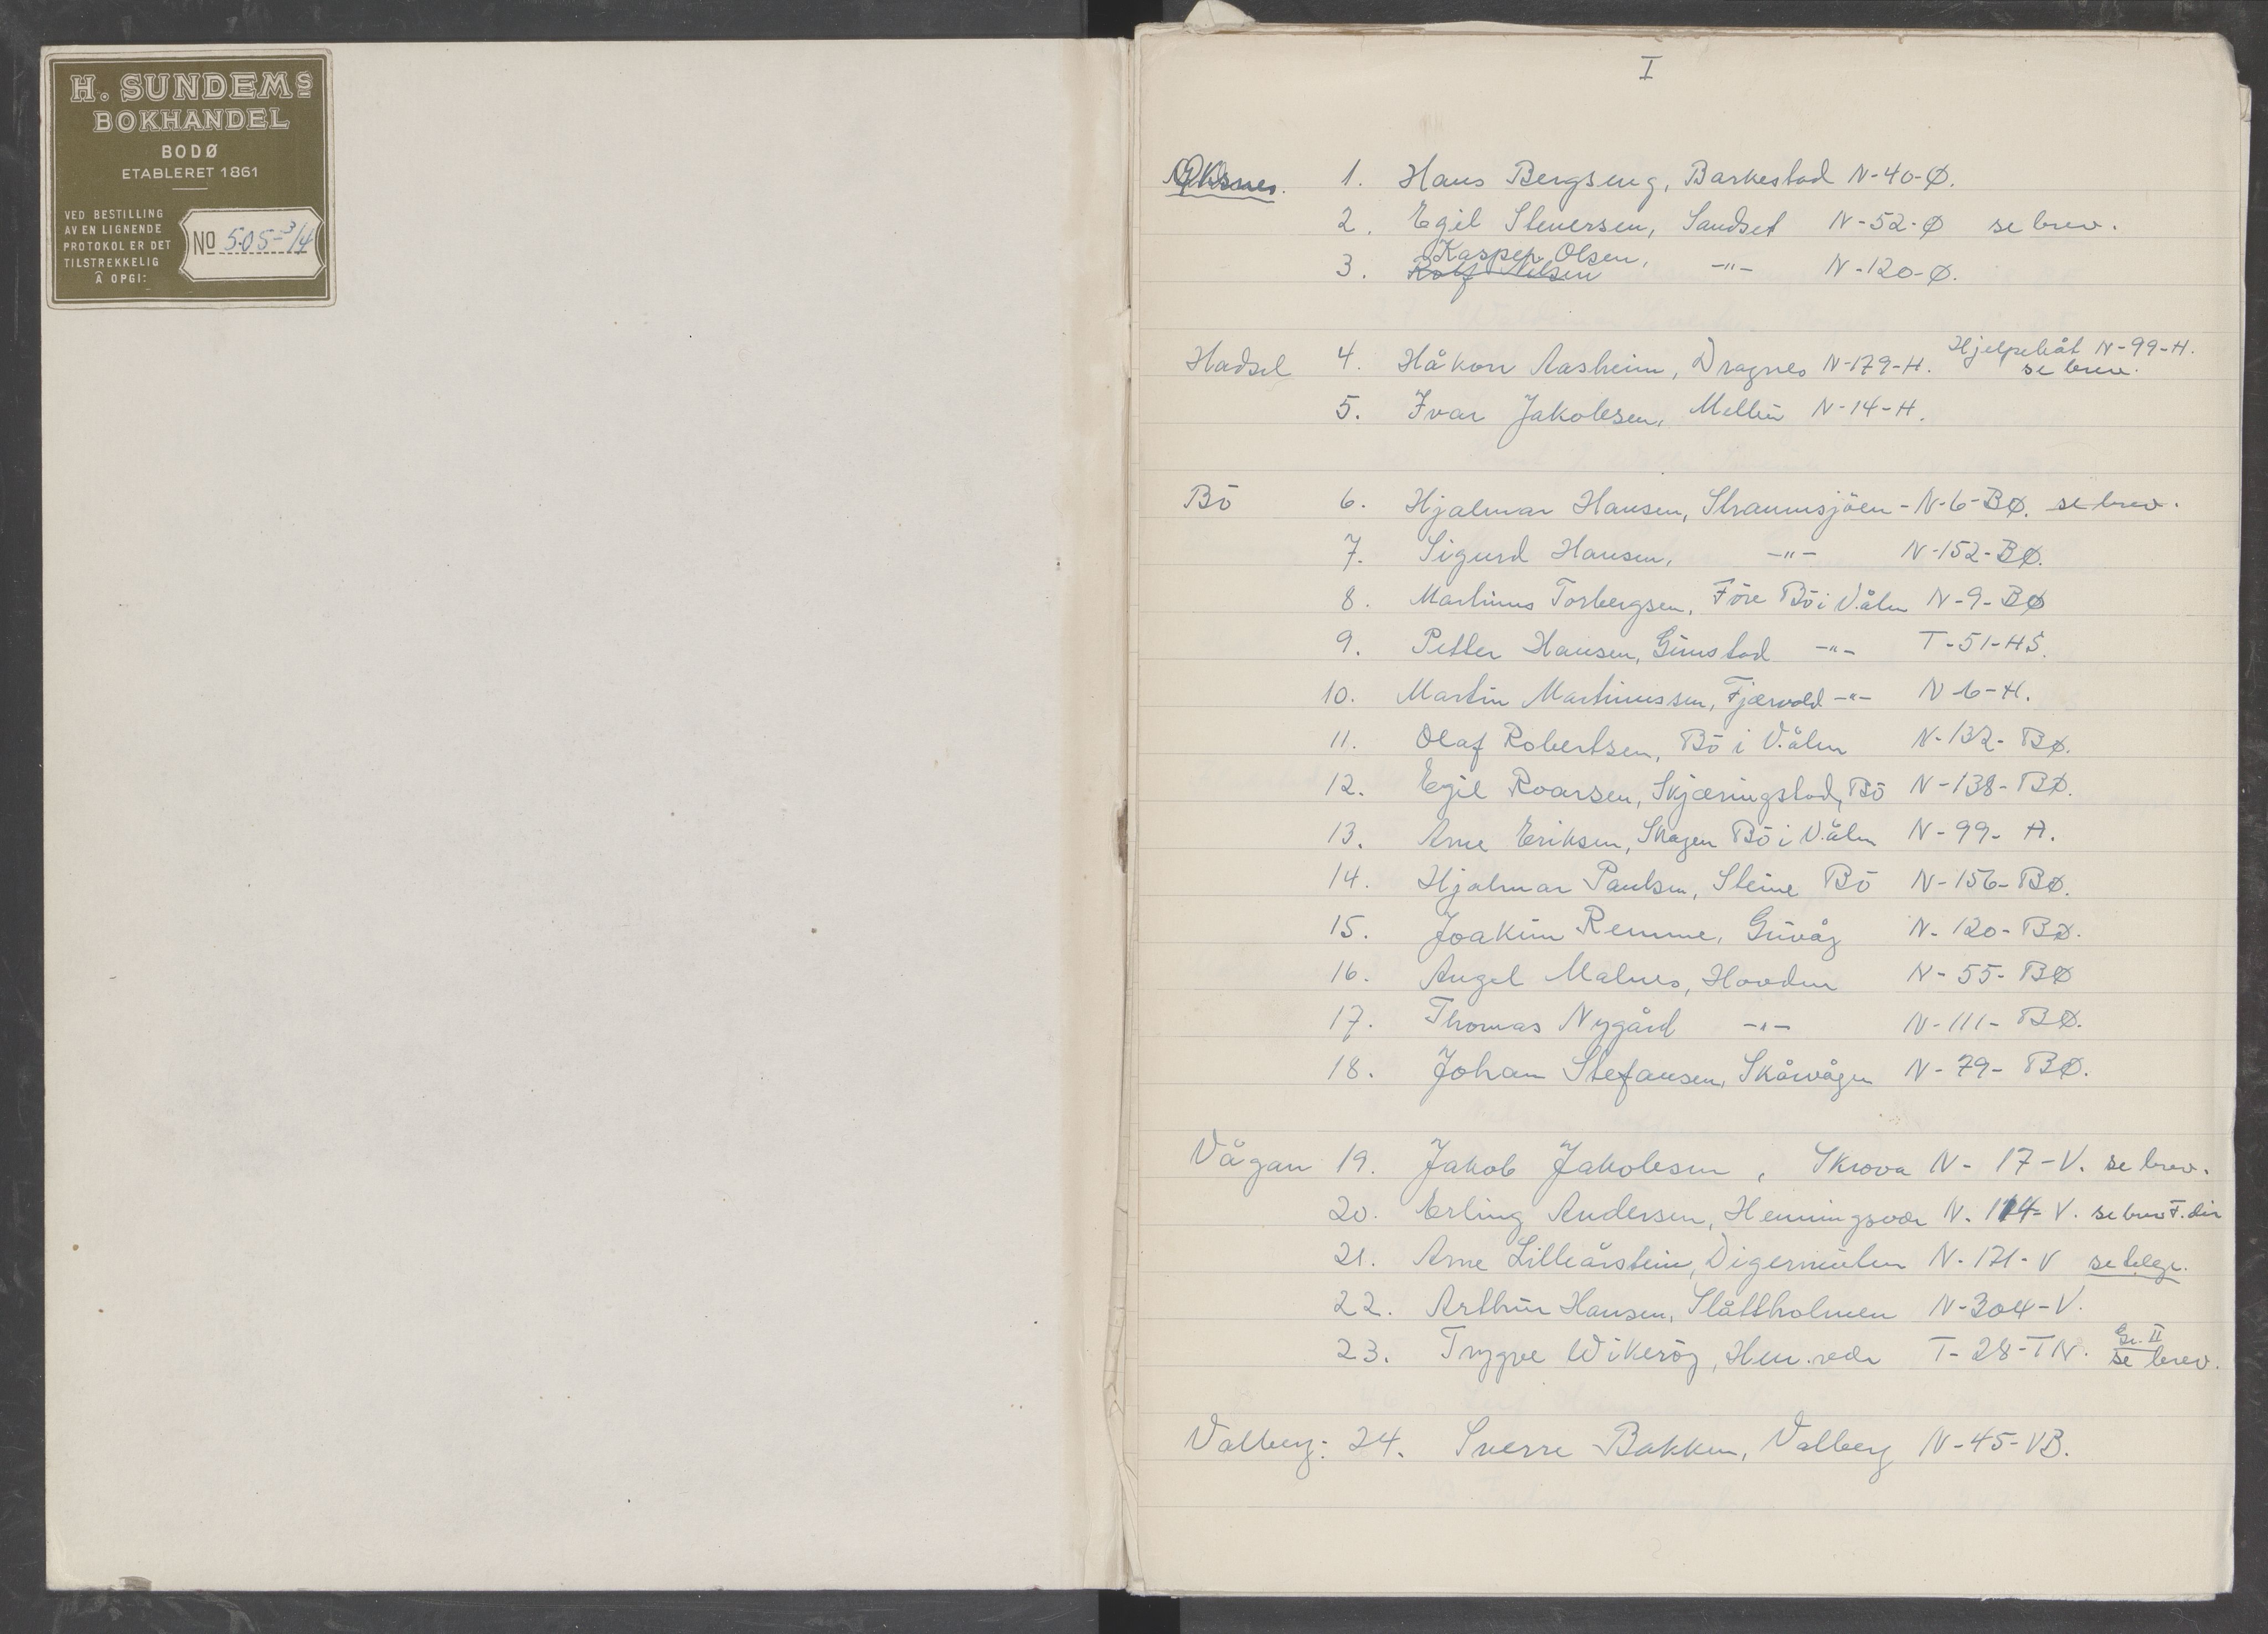 H. SUNDEMS
BOKHANDEL
BODØ
ETABLERET 1861
VED BESTILLING
AV EN LIGNENDE
PROTOKOL ER DET
TILSTREKKELIG
Å OPGI:
No 505-3/4
I
Øksnes. 1. Hans Bergseng, Barkestad N-40-Ø.
2. Egil Steversen, Sandset N-52-Ø se brev.
Kasper Olsen,
3. Rolf Nilsen -"- N-120-Ø.
Hjelpebåt N-99-H.
Hadsel 4. Håkon Aasheim, Dragnes N-179-H. se brev.
5. Ivar Jakobsen, Melbu N-14-H.
Bö 6. Hjalmar Hansen, Straumsjöen - N-6-BØ. se brev.
7. Sigurd Hansen, -"- N-152-BØ.
8. Martinus Torbergsen, Före Bö i V.ålen N-9-BØ
9. Petter Hansen, Guustad -"- T-51-HS.
10. Martin Martinussen, Fjærvold -"- N-6-H.
11. Olaf Robertsen, Bö i V.ålen N-132-BØ.
12. Egil Roarsen, Skjæringstad, Bö N-138-BØ.
13. Arne Eriksen, Skagen Bö i V.ålen N-99-H.
14. Hjalmar Paulsen, Steine Bö N-156-BØ.
15. Joakim Remme, Guvåg N-120-BØ.
16. Angel Malnes, Hovden N-55-BØ
17. Thomas Nygård -"- N-111-BØ.
18. Johan Stefansen, Skårvågen N-79-BØ.
Vågan 19. Jakob Jakobsen, Skrova N-17-V. se brev.
20. Erling Andersen, Henningsvær N-114-V. se brev F.dir
21. Arne Lilleårstein, Digermulen N-171-V se telegr.
22. Arthur Hansen, Slåttholmen N-304-V.
Gr. II
23. Trygve Wikeröy, Hen.vær T-28-TN. se brev.
Valberg: 24. Sverre Bakken, Valberg N-45-VB.